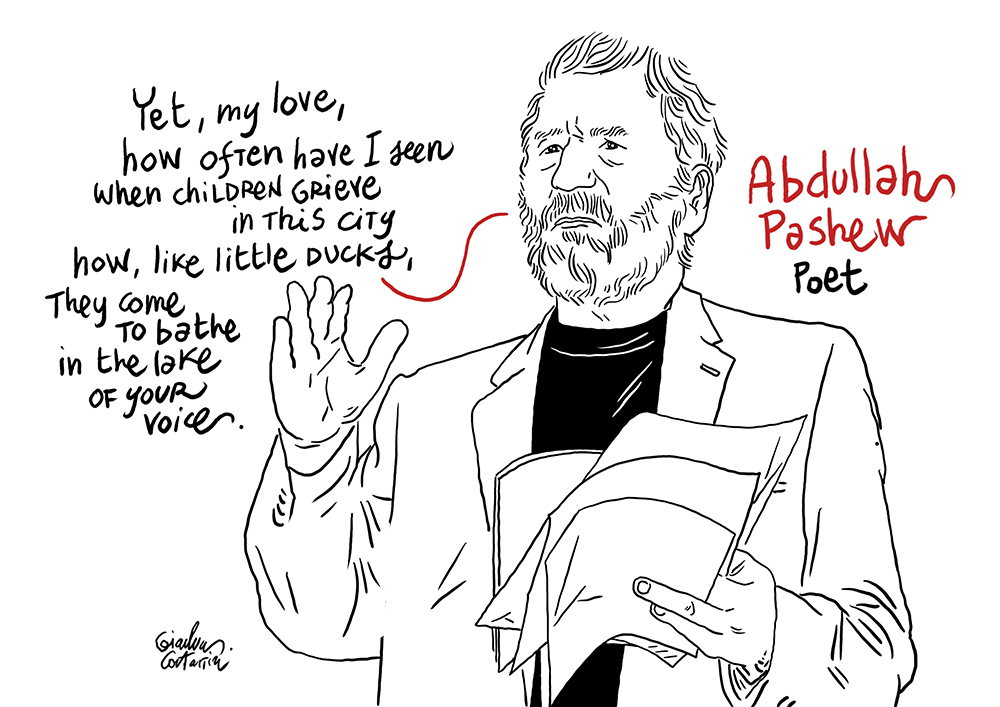 Yet, my love,
how often have I seen
when children grieve
in this city
how, like little ducks,
They come
to bathe
in the lake
of your
voice.
Abdullah
Pashew
Poet